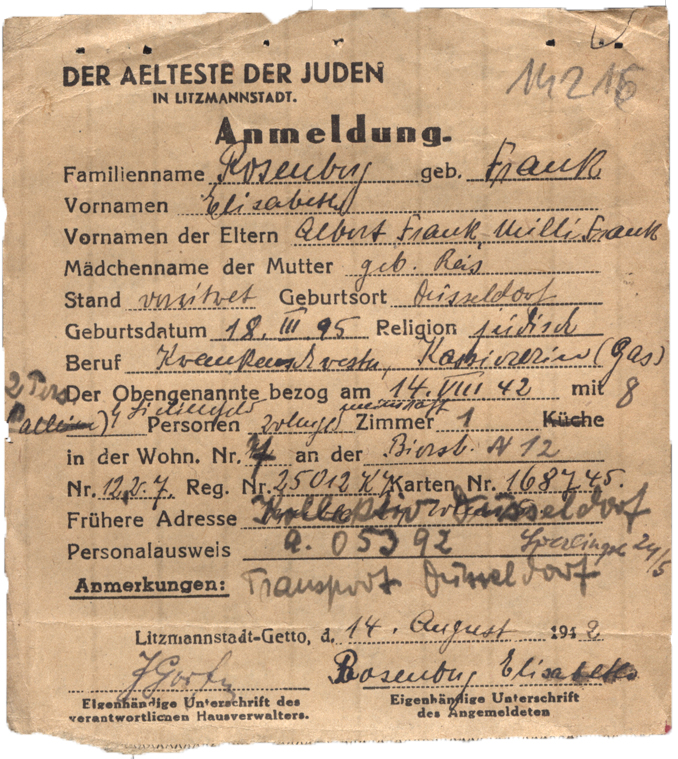 DER AELTESTE DER JUDEN
IN LITZMANNSTADT.
14216
Anmeldung.
Familienname Rosenberg geb. Frank
Vornamen Elisabeth
Vornamen der Eltern Albert Frank, Milli Frank
Mädchenname der Mutter geb. Reis
Stand verwitwet Geburtsort Düsseldorf
Geburtsdatum 18. III. 95 Religion jüdisch
Beruf Krankenschwester, Kassiererin (Gas)
Der Obengenannte bezog am 14. VIII 42 mit 8
2 Pers.
Personen Zimmer 1 Küche
in der Wohn. Nr. 7 an der Bierstr. N 12
Nr. 12, v. 7. Reg. Nr. 25012 Karten Nr. 168745.
Frühere Adresse Kollektiv Düsseldorf
Personalausweis a. 05392 24/5
Anmerkungen: Transport Düsseldorf
Litzmannstadt-Getto, d. 14. August 1942
Rosenberg Elisabeth
Eigenhändige Unterschrift des
verantwortlichen Hausverwalters.
Eigenhändige Unterschrift
des Angemeldeten